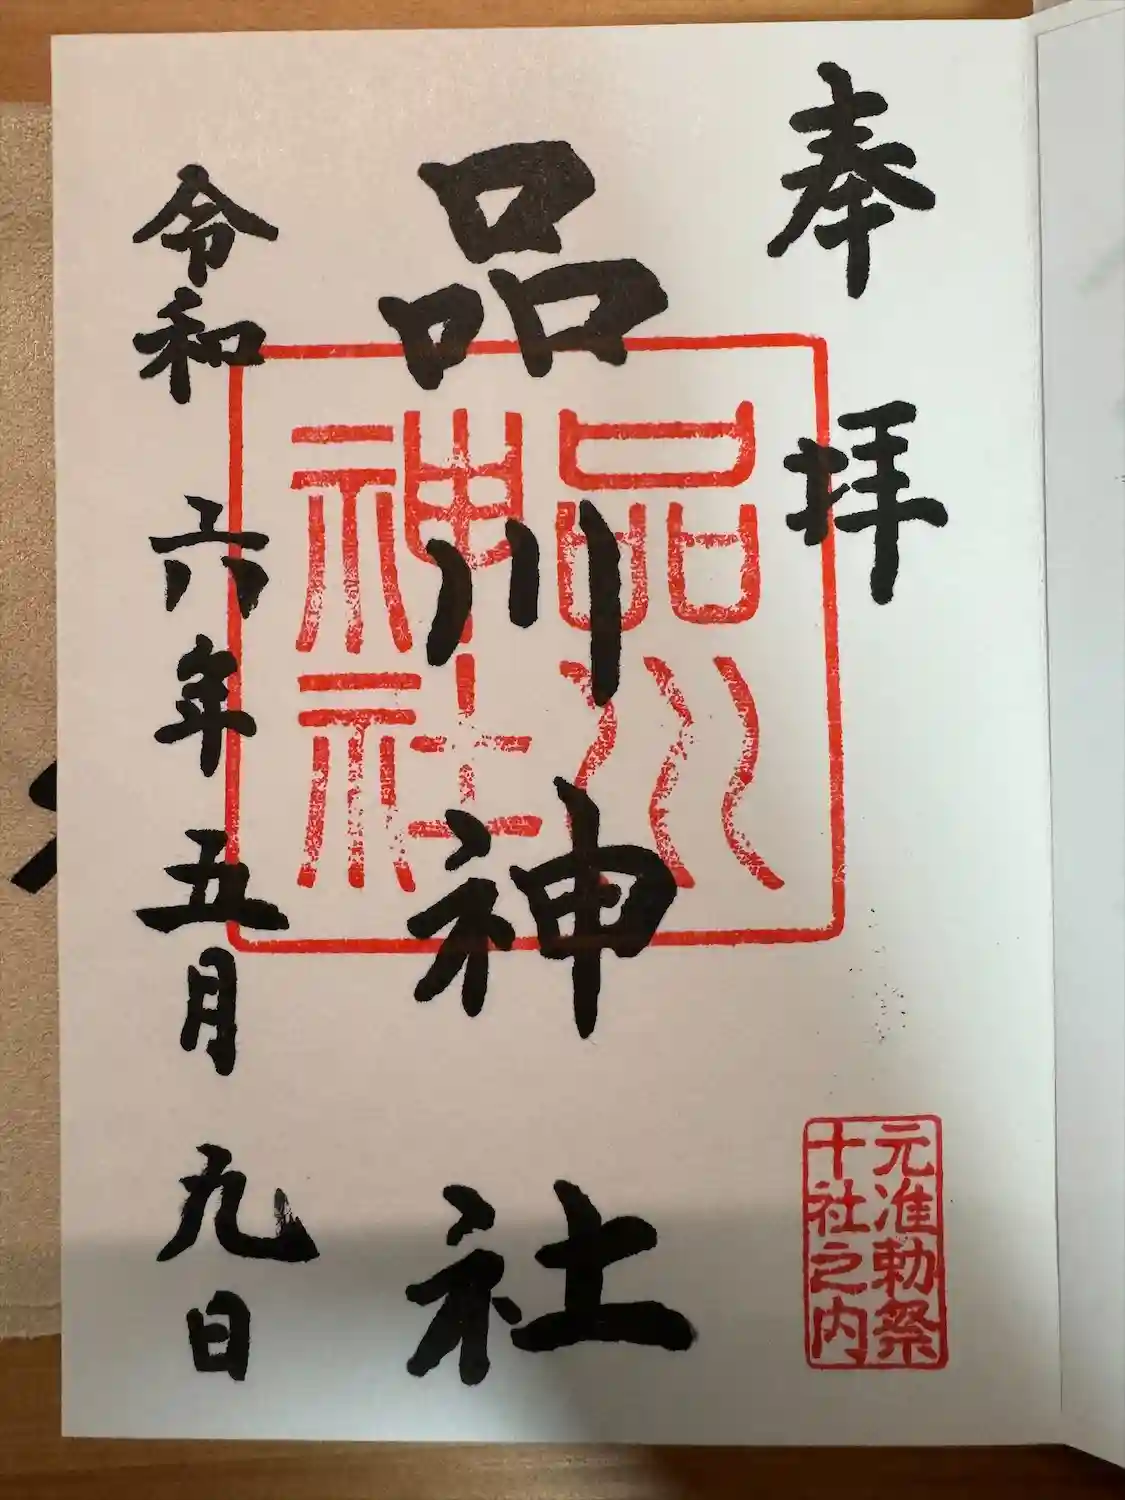 奉拝
品川神社
令和六年五月九日
品川
神社
元准勅祭
十社之内